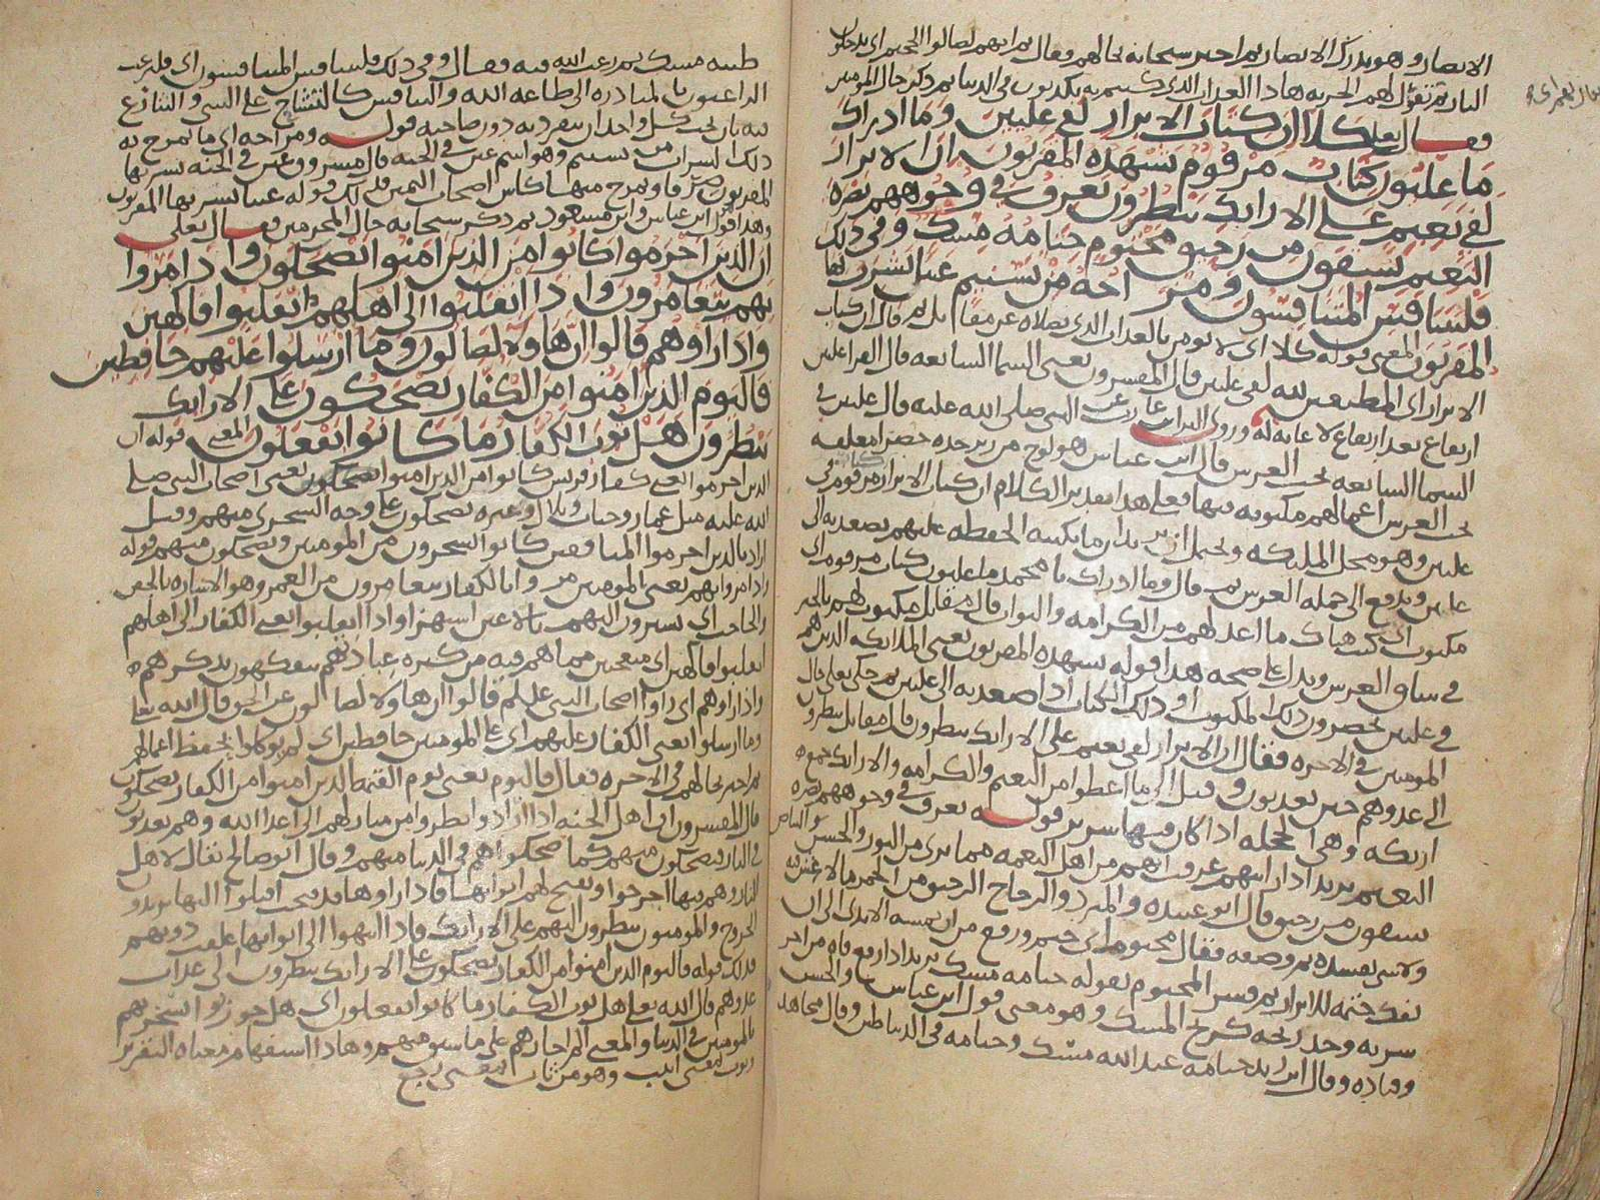 الابصار وهو يدرك الابصار ثم اخبر سبحانه بحالهم فقال ثم انهم لصالوا الجحيم اي يدخلون
النار ثم تقول لهم الخزنه هاذا العذاب الذي كنتم به تكذبون في الدنيا ثم ذكر حال المومنين
فقال تعلى كلا ان كتاب الابرار لفي عليين وما ادراك
ما عليون كتاب مرقوم يشهده المقربون ان الابرار
لفي نعيم على الارايك ينظرون تعرف في وجوههم نضره
النعيم يسقون من رحيق مختوم ختامه مسك وفي ذلك
فليتنافس المتنافسون ومزاجه من تسنيم عينا يشرب بها
المقربون المعنى قوله كلا اي لا يومن بالعذاب الذي يصلاه ثم قال ان كتاب
الابرار اي المطيعين لله لفي عليين قال المفسرون يعني السما السابعه قال الفرا عليين
ارتفاع بعد ارتفاع لا غايه له وروى البرا بن عازب عن النبي صلى الله عليه قال عليين في
السما السابعه تحت العرش قال ابن عباس هو لوح من زبرجده خضرا معلقه
تحت العرش اعمالهم مكتوبه فيها فعلى هذا تقدير الكلام ان كتاب الابرار كتاب مرقوم في
عليين وهو محل المليكه ويحتمل ان يريد ان ما يكتبه الحفظه عليهم يصعد به الى
عليين ويدفع الى حمله العرش ثم قال وما ادراك يا محمد ما عليون كتاب مرقوم اي
مكتوب اي كتب هناك ما اعد لهم من الكرامه والثواب قال مقاتل مكتوب لهم بالخير
في ساق العرش ويدل على صحه هذا قوله يشهده المقربون يعني الملايكه الذين هم
في عليين يحضرون ذلك المكتوب او ذلك الكتاب اذا صعد به الى عليين ثم حكى تعلى حال
المومنين في الاخره فقال ان الابرار لفي نعيم على الارايك ينظرون قال مقاتل ينظرون
الى عدوهم حين يعذبون وقيل الى ما اعطوا من النعيم والكرامه والارايك جمع
اريكه وهي الحجله اذا كان فيها سرير قوله تعرف في وجوههم نضره
النعيم يريد اذا رايتهم عرفت انهم من اهل النعمه مما ترى من النور والحسن والبياض
يسقون من رحيق قال ابو عبيده والمبرد والزجاج الرحيق من الخمر ما لا غش فيه
ولا شي يفسده ثم وصفه فقال مختوم اي ختم ومنع من ان يمسه الايدي الى ان
يفك ختمه للابرار ثم فسر المختوم بقوله ختامه مسك يريد اذا رفع فاه من اخر
شربه وجد ريحه كريح المسك وهو معنى قول ابن عباس والحسن
وقتاده وقال ابن زيد ختامه عند الله مسك وختامه في الدنيا طين وقال مجاهد
طينه مسك ثم رغب الله فيه فقال وفي ذلك فليتنافس المتنافسون اي فليرغب
الراغبون بالمبادره الى طاعه الله والتنافس كالتشاح على الشي والتنازع
فيه بان يحب كل واحد ان ينفرد به دون صاحبه قوله ومزاجه اي ما يمزج به
ذلك الشراب من تسنيم وهو اسم عين في الجنه قال مسروق عين في الجنه يشربها
المقربون صرفا ويمزج منها كاس اصحاب اليمين فذلك قوله عينا يشرب بها المقربون
وهذا قول ابن عباس وابن مسعود ثم ذكر سبحانه حال المجرمين فقال تعلى
ان الذين اجرموا كانوا من الذين امنوا يضحكون واذا مروا
بهم يتغامزون واذا انقلبوا الى اهلهم انقلبوا فاكهين
واذا راوهم قالوا ان هاولا لضالون وما ارسلوا عليهم حافظين
فاليوم الذين امنوا من الكفار يضحكون على الارايك
ينظرون هل ثوب الكفار ما كانوا يفعلون المعنى قوله ان
الذين اجرموا يعني كفار قريش كانوا من الذين امنوا يضحكون يعني اصحاب النبي صلى
الله عليه مثل عمار وخباب وبلال وغيره يضحكون على وجه السخري منهم وقيل
اراد بالذين اجرموا المنافقين كانوا يسخرون من المومنين ويضحكون منهم قوله
واذا مروا بهم يعني المومنين مروا بالكفار يتغامزون من الغمز وهو الاشاره بالجفن
والحاجب اي يشيرون اليهم بالاعين استهزا واذا انقلبوا يعني الكفار الى اهلهم
انقلبوا فاكهين اي متعجبين مما هم فيه من كثره عبادتهم يتفكهون بذكرهم
واذا راوهم اي راوا اصحاب النبي عليلم قالوا ان هاولا لضالون عن الحق قال الله تعلى
وما ارسلوا يعني الكفار عليهم اي على المومنين حافظين اي لم يوكلوا بحفظ اعمالهم
ثم اخبر بحالهم في الاخره فقال فاليوم يعني يوم القيمه الذين امنوا من الكفار يضحكون
قال المفسرون ان اهل الجنه اذا ارادوا نظروا من منازلهم الى اعدا الله وهم يعذبون
في النار فيضحكون منهم كما ضحكوا هم في الدنيا منهم وقال ابو صالح تقال لاهل
النار وهم فيها اخرجوا ويفتح لهم ابوابها فاذا راوها قد فتحت اقبلوا اليها يريدون
الخروج والمومنون ينظرون اليهم على الارايك فاذا انتهوا الى ابوابها غلقت دونهم
فذلك قوله فاليوم الذين امنوا من الكفار يضحكون على الارايك ينظرون الى عذاب
عدوهم قال الله تعلى هل ثوب الكفار ما كانوا يفعلون اي هل جوزيوا بسخريهم
بالمومنين في الدنيا والمعنى الم اجازهم على ما سو منهم وهاذا استفهام معناه التقرير
وثوب بمعنى اثيب وهو من ثاب بمعنى رجع